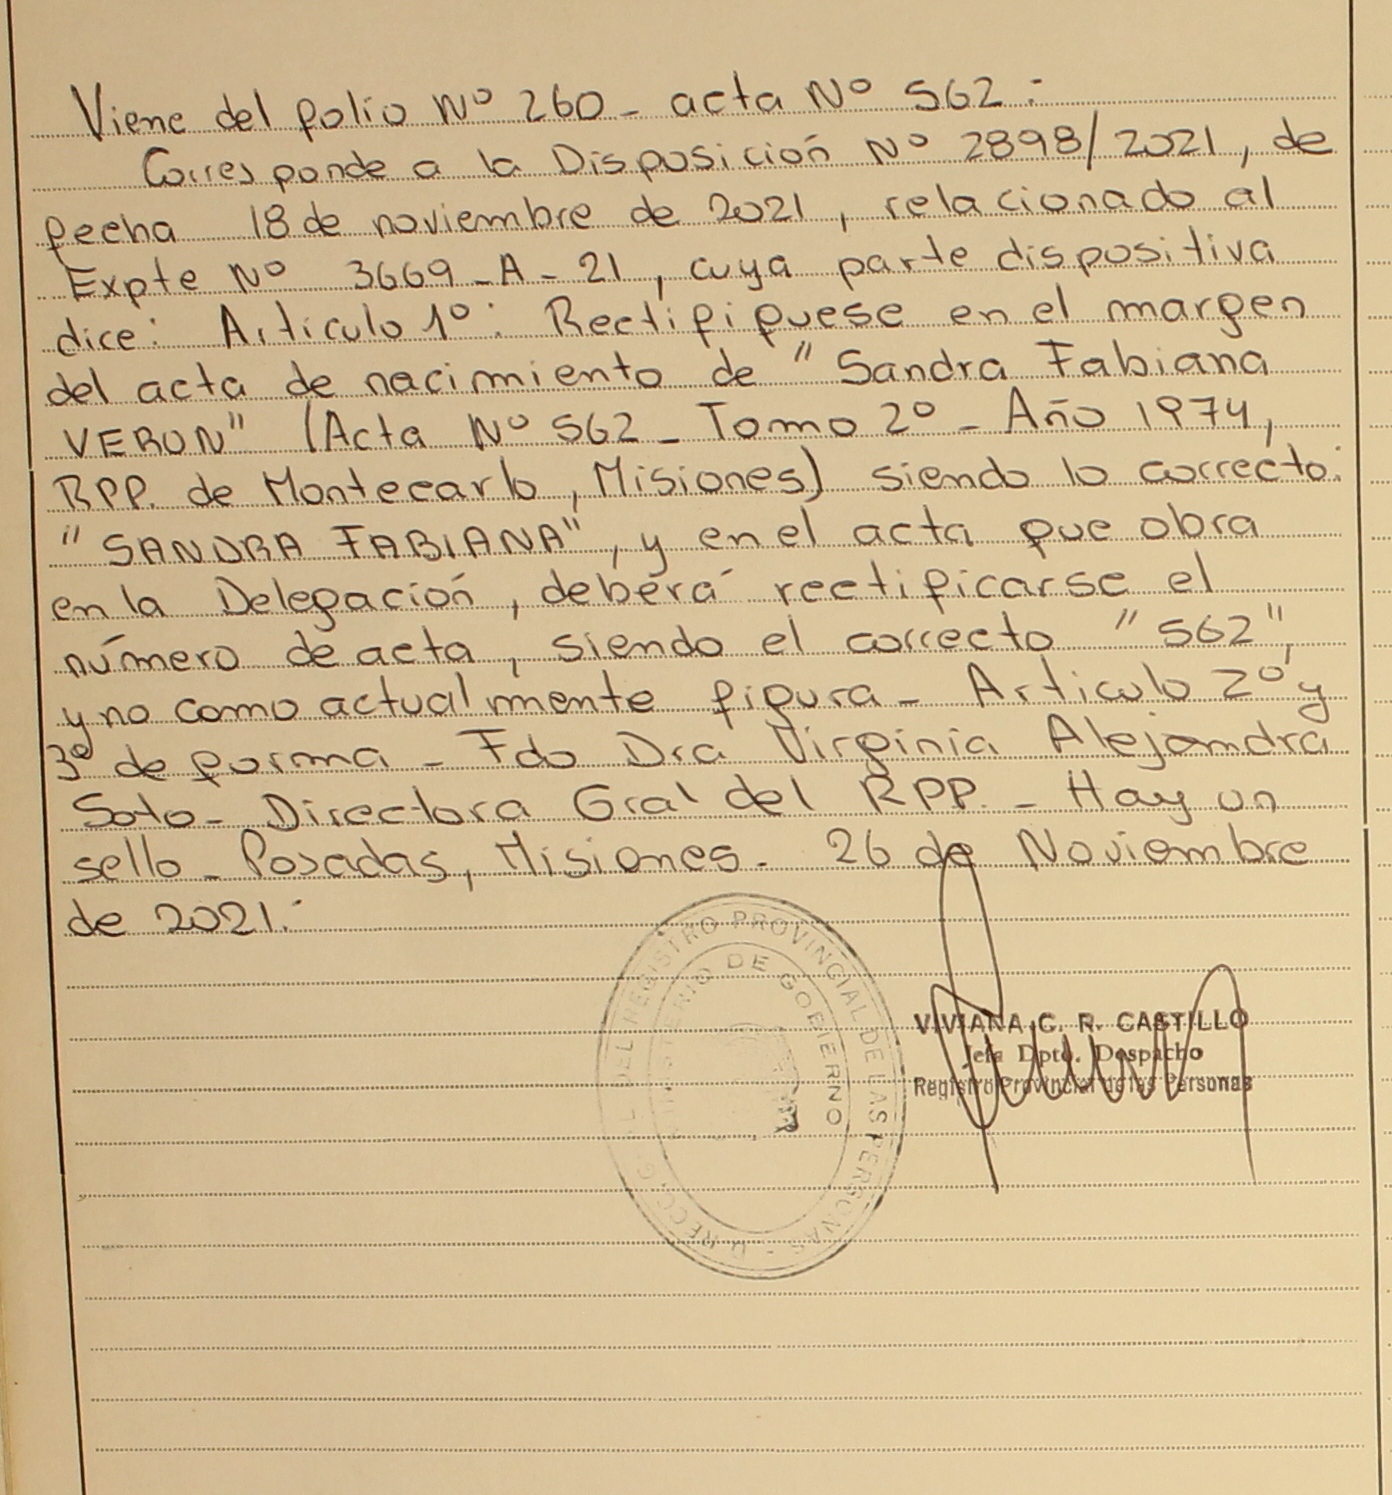 Viene del folio Nº 260 - acta Nº 562 :
Corresponde a la Disposición Nº 2898/2021, de
fecha 18 de noviembre de 2021, relacionado al
Expte Nº 3669-A-21, cuya parte dispositiva
dice: Articulo 1º: Rectifiquese en el margen
del acta de nacimiento de "Sandra Fabiana
VERON" (Acta Nº 562 - Tomo 2º - Año 1974,
RPP. de Montecarlo, Misiones) siendo lo correcto:
"SANDRA FABIANA", y en el acta que obra
en la Delegación, deberá rectificarse el
número de acta, siendo el correcto "562",
y no como actualmente figura - Articulo 2º y
3º de forma - Fdo Dra Virginia Alejandra
Soto - Directora Gral del RPP. - Hay un
sello - Posadas, Misiones. 26 de Noviembre
de 2021.-
DEL REGISTRO PROVINCIAL DE LAS PERSONAS
MINISTERIO DE GOBIERNO
VIVIANA C. R. CASTILLO
Jefa Dpto. Despacho
Registro Provincial de las Personas